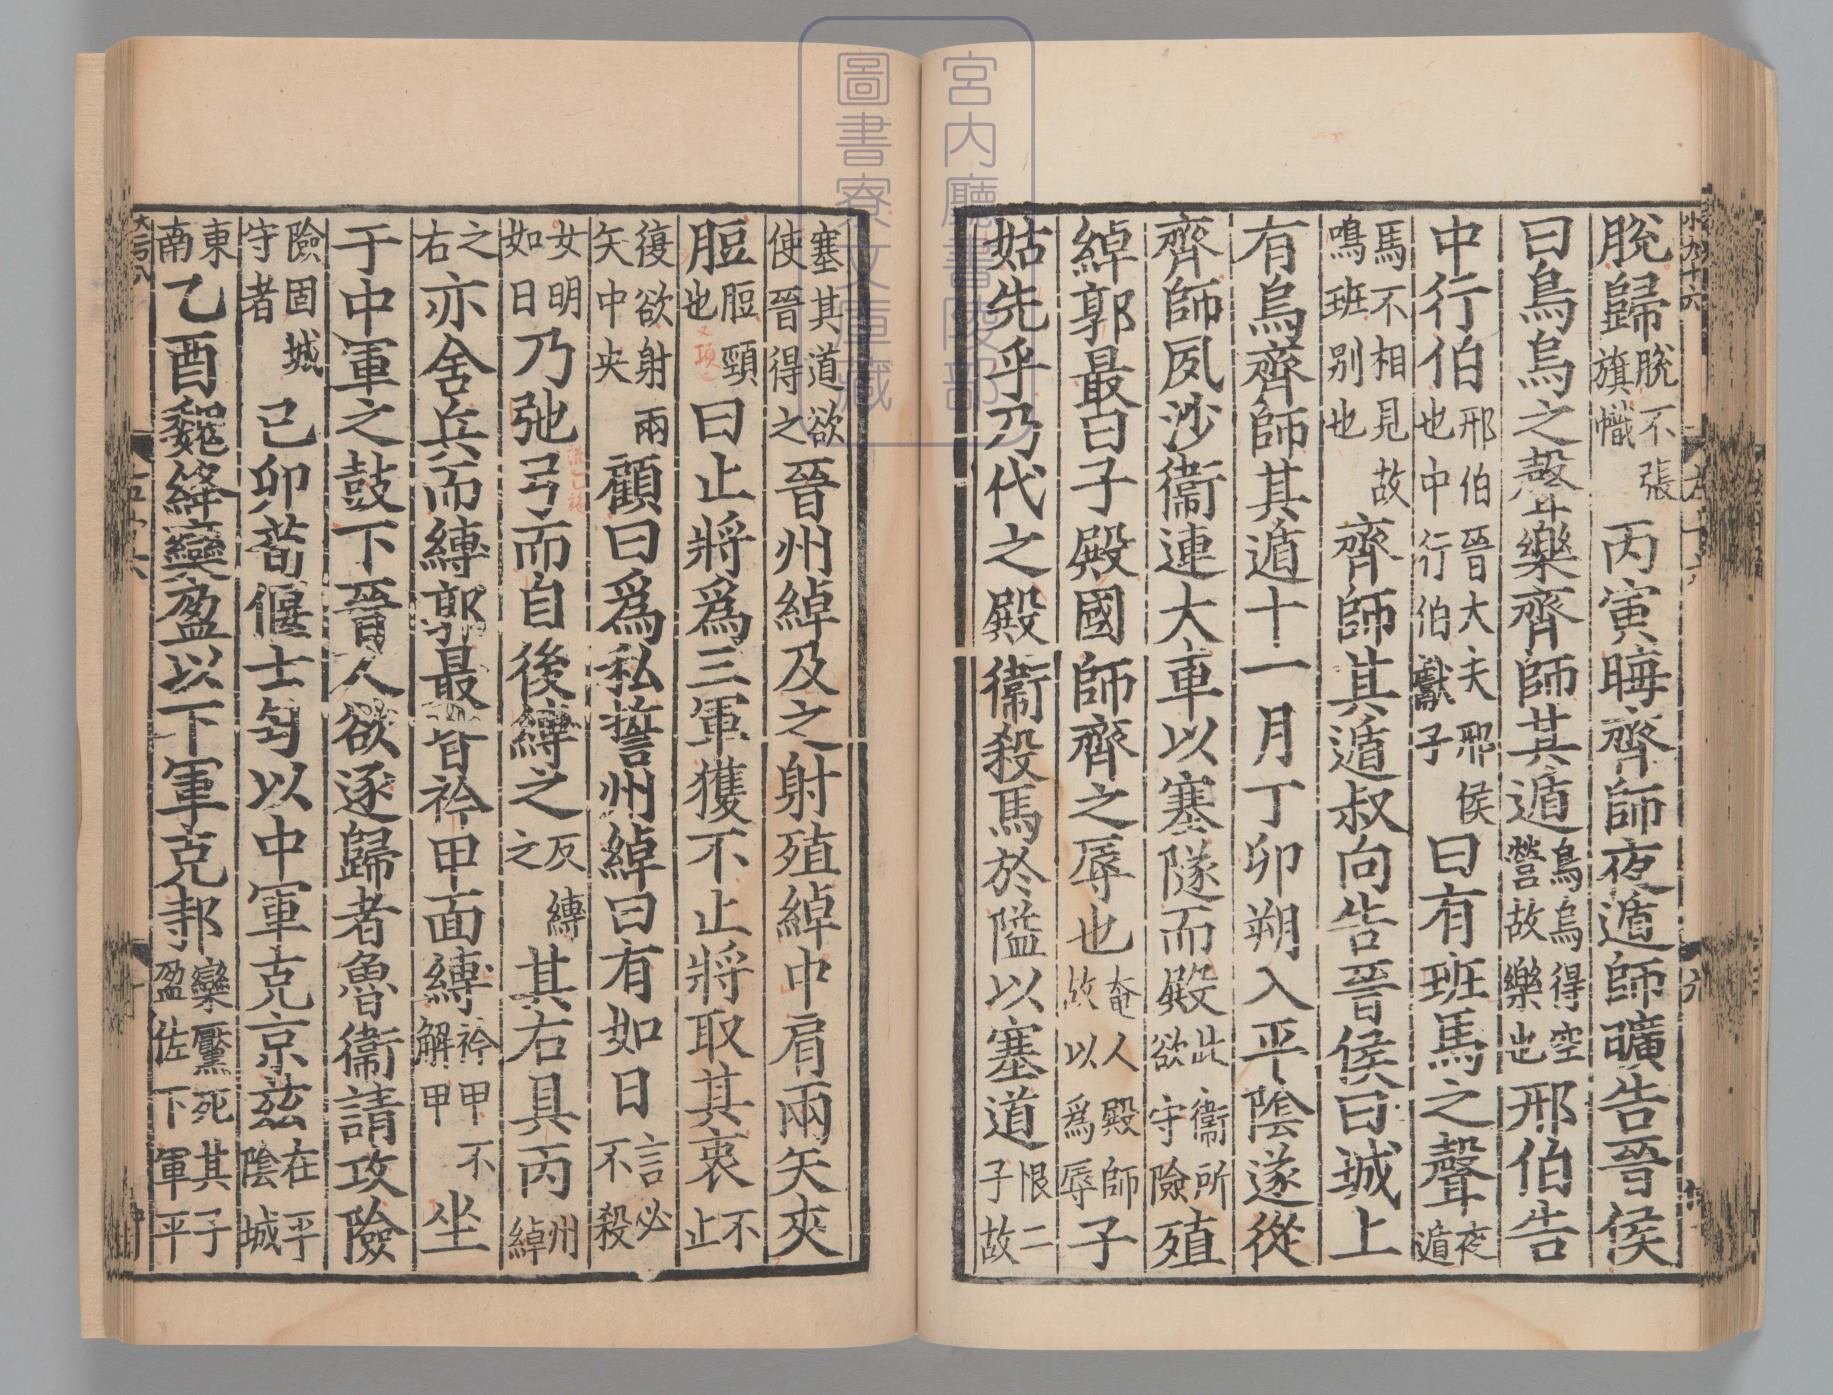 宮內廳書陵部
圖書寮文庫藏
脫歸脫不張旗幟丙寅晦齊師夜遁師曠告晉侯
曰鳥烏之聲樂齊師其遁鳥烏得空營故樂也邢伯告
中行伯邢伯晉大夫邢侯也中行伯獻子曰有班馬之聲夜遁
馬不相見故鳴班別也齊師其遁叔向告晉侯曰城上
有烏齊師其遁十一月丁卯朔入平陰遂從
齊師夙沙衞連大車以塞隧而殿此衞所欲守險殖
綽郭最曰子殿國師齊之辱也奄人殿師故以爲辱子
姑先乎乃代之殿衞殺馬於隘以塞道恨二子故
塞其道欲使晉得之晉州綽及之射殖綽中肩兩矢夾
脰脰頸也曰止將爲三軍獲不止將取其衷不止
復欲射兩矢中央顧曰爲私誓州綽曰有如日言必不殺
女明如日乃弛弓而自後縛之反縛之其右具丙州綽
之右亦舍兵而縛郭最皆衿甲面縛衿甲不解甲坐
于中軍之鼓下晉人欲逐歸者魯衞請攻險
險固城守者己卯荀偃士匄以中軍克京茲在平陰城
東南乙酉魏絳欒盈以下軍克邿欒黶死其子盈佐下軍平